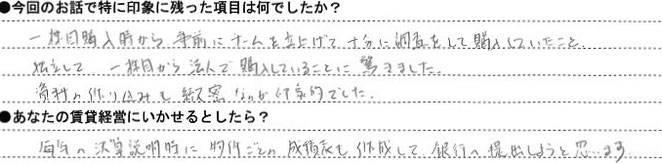 ●今回のお話で特に印象に残った項目は何でしたか？
一棟目購入時から事前にチームを立上げて十分に調査をして購入していたこと。
独立して 一棟目から法人で購入していることに驚きました。
資料の作り込みも緻密なのが印象的でした。
●あなたの賃貸経営にいかせるとしたら？
毎年の決算説明時に物件ごとの成績表も作成して銀行へ提出しようと思います